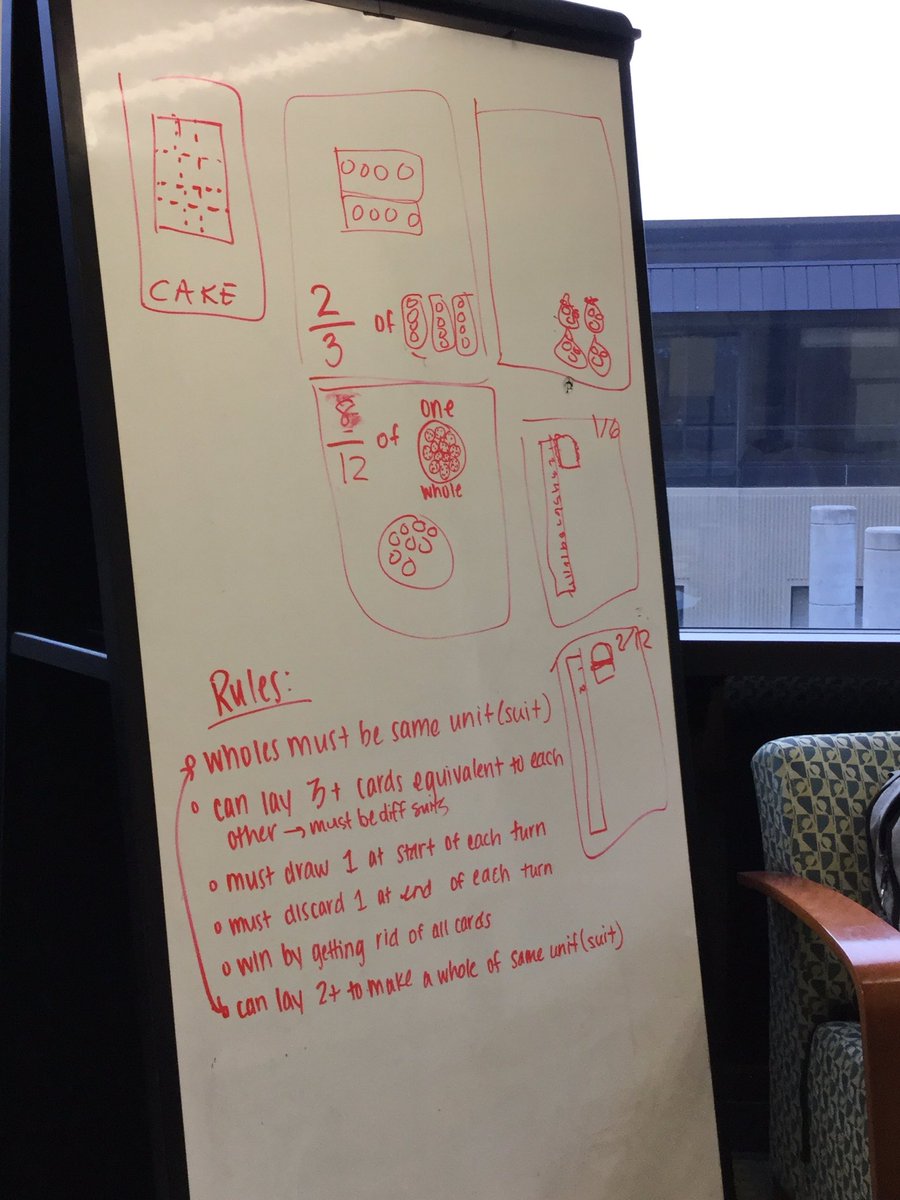 CAKE
2/3 of
8/12 of one whole
1/6
2/12
Rules:
wholes must be same unit (suit)
can lay 3+ cards equivalent to each
other → must be diff suits
must draw 1 at start of each turn
must discard 1 at end of each turn
win by getting rid of all cards
can lay 2+ to make a whole of same unit (suit)